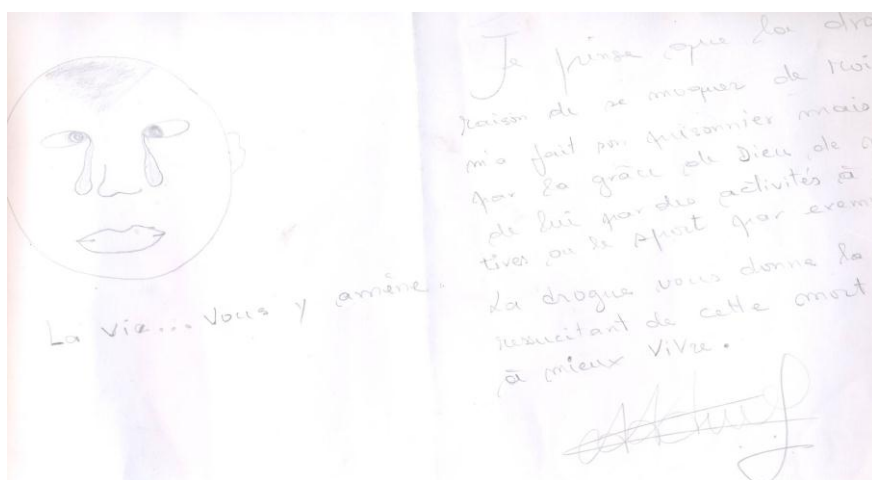 La vie... Vous y amène.
Je pense que la dro
raison de se moquer de moi
m'a fait son prisonnier mais
par la grâce de Dieu, de
de lui par des activités à
tives ou le sport par exem
La drogue vous donne la
ressucitant de cette mort
à mieux Vivre.